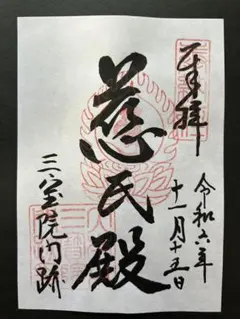 奉拝
令和六年
十一月十五日
慈氏殿
三宝院門跡